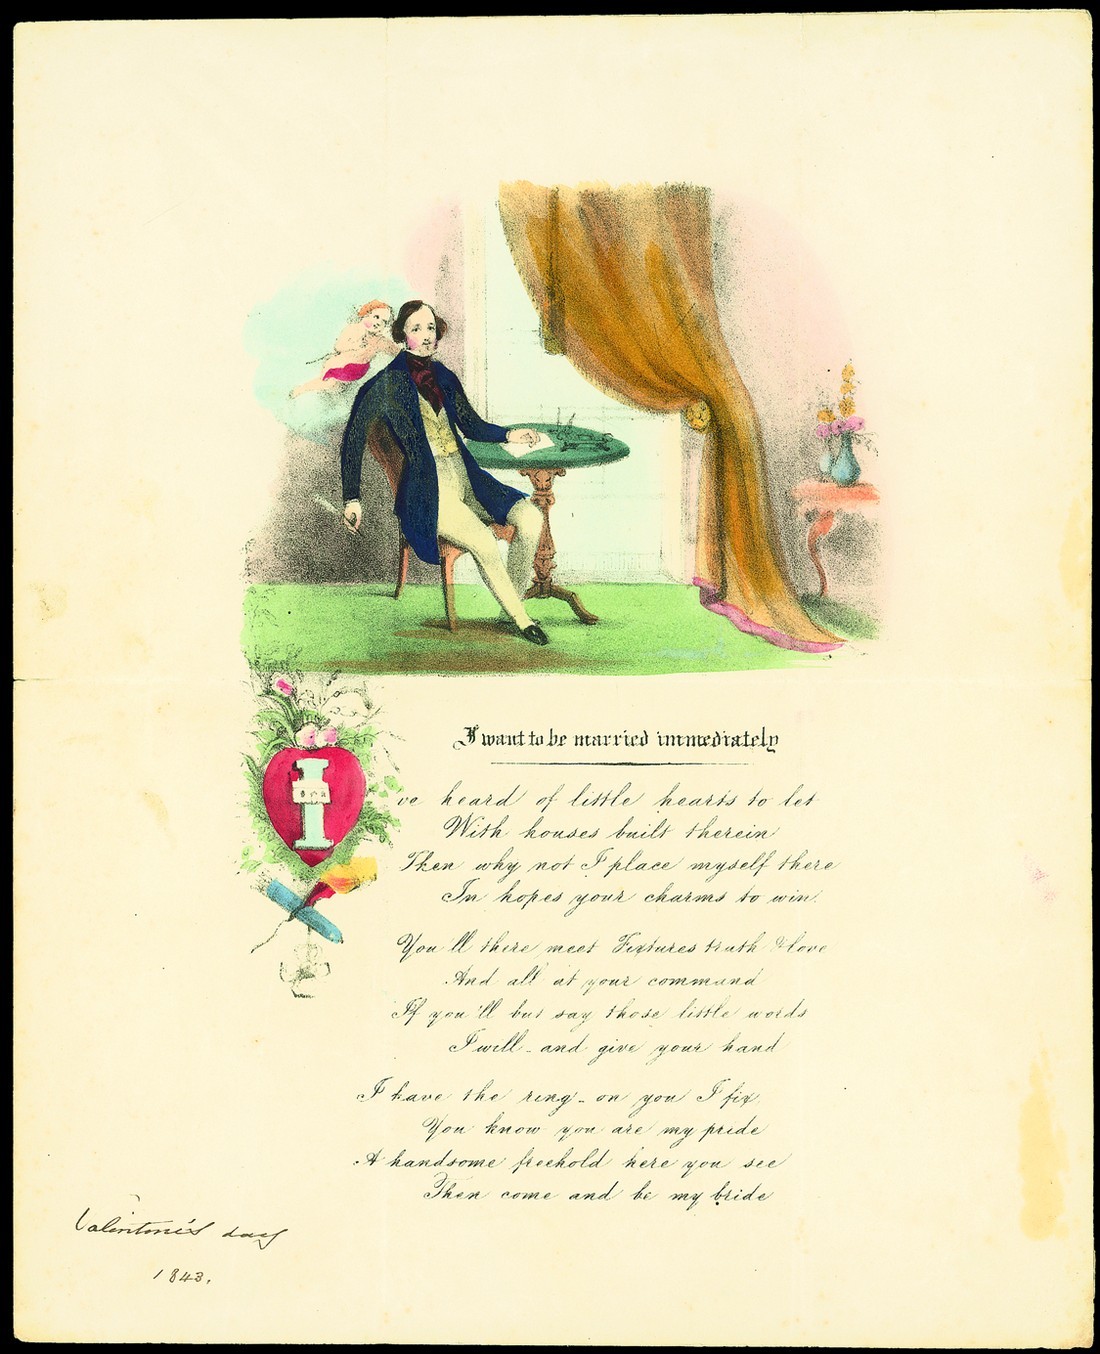 I want to be married immediately
I've heard of little hearts to let
With houses built therein
Then why not I place myself there
In hopes your charms to win.
You'll there meet Fixtures truth & love
And all at your command
If you'll but say those little words
I will - and give your hand
I have the ring - on you I fix
You know you are my pride
A handsome freehold here you see
Then come and be my bride
Valentine's day
1843.